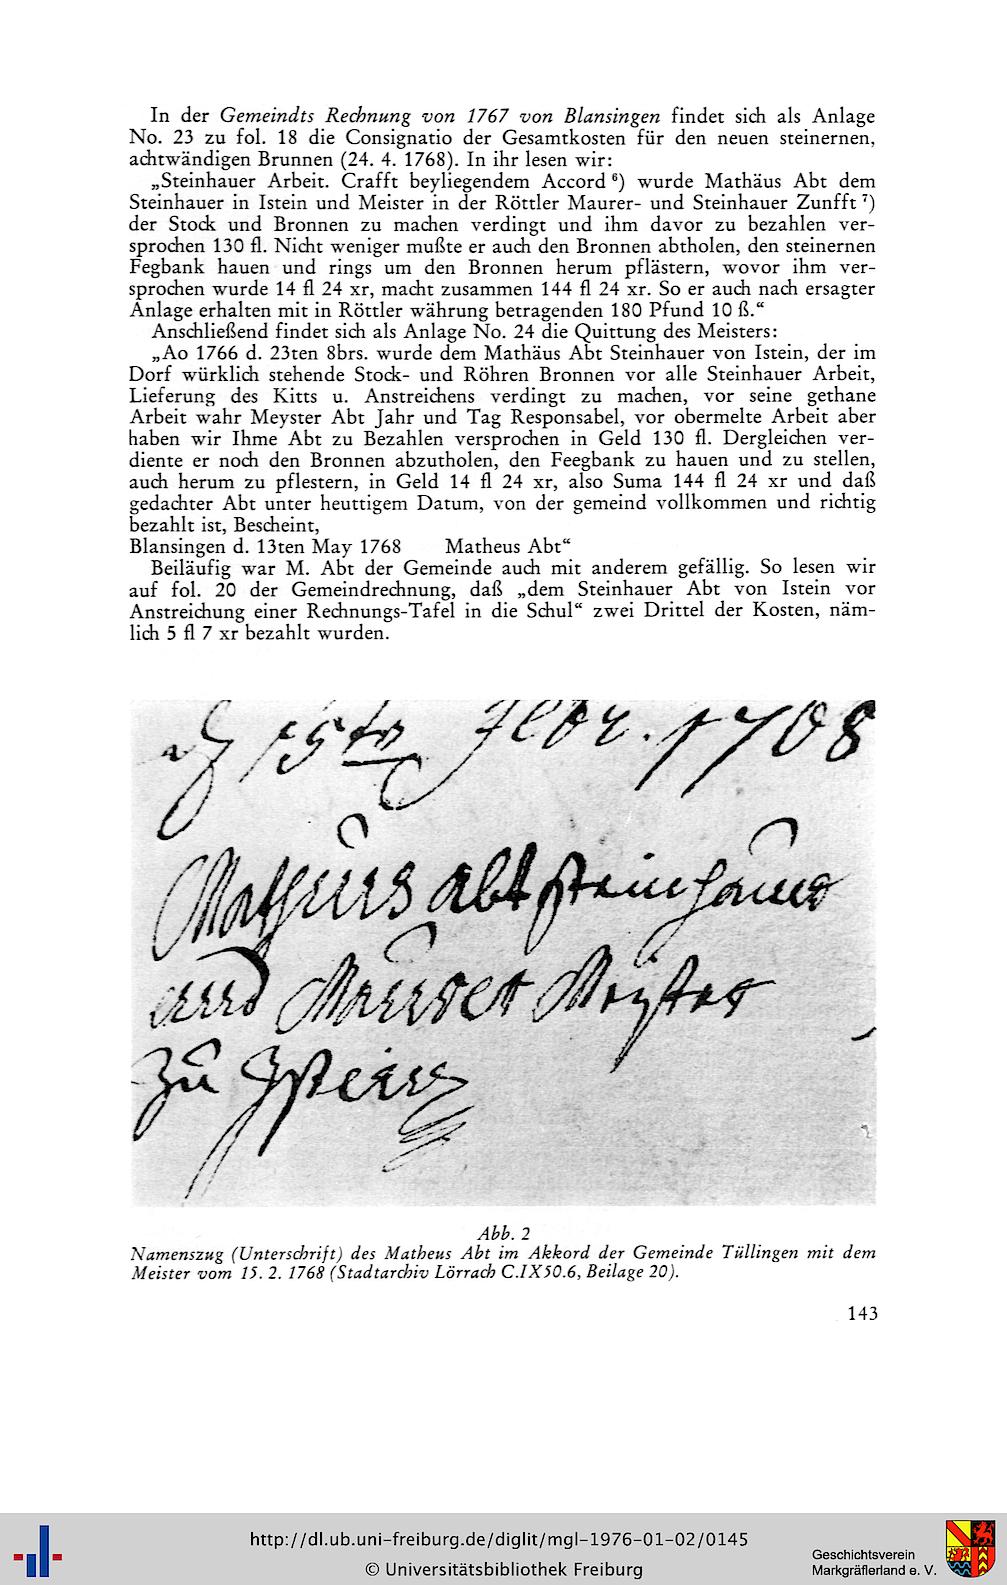 In der Gemeindts Rechnung von 1767 von Blansingen findet sich als Anlage
No. 23 zu fol. 18 die Consignatio der Gesamtkosten für den neuen steinernen,
achtwändigen Brunnen (24. 4. 1768). In ihr lesen wir:
„Steinhauer Arbeit. Crafft beyliegendem Accord ⁶) wurde Mathäus Abt dem
Steinhauer in Istein und Meister in der Röttler Maurer- und Steinhauer Zunfft ⁷)
der Stock und Bronnen zu machen verdingt und ihm davor zu bezahlen ver-
sprochen 130 fl. Nicht weniger mußte er auch den Bronnen abtholen, den steinernen
Fegbank hauen und rings um den Bronnen herum pflästern, wovor ihm ver-
sprochen wurde 14 fl 24 xr, macht zusammen 144 fl 24 xr. So er auch nach ersagter
Anlage erhalten mit in Röttler währung betragenden 180 Pfund 10 ß.“
Anschließend findet sich als Anlage No. 24 die Quittung des Meisters:
„Ao 1766 d. 23ten 8brs. wurde dem Mathäus Abt Steinhauer von Istein, der im
Dorf würklich stehende Stock- und Röhren Bronnen vor alle Steinhauer Arbeit,
Lieferung des Kitts u. Anstreichens verdingt zu machen, vor seine gethane
Arbeit wahr Meyster Abt Jahr und Tag Responsabel, vor obermelte Arbeit aber
haben wir Ihme Abt zu Bezahlen versprochen in Geld 130 fl. Dergleichen ver-
diente er noch den Bronnen abzutholen, den Feegbank zu hauen und zu stellen,
auch herum zu pflestern, in Geld 14 fl 24 xr, also Suma 144 fl 24 xr und daß
gedachter Abt unter heuttigem Datum, von der gemeind vollkommen und richtig
bezahlt ist, Bescheint,
Blansingen d. 13ten May 1768 Matheus Abt“
Beiläufig war M. Abt der Gemeinde auch mit anderem gefällig. So lesen wir
auf fol. 20 der Gemeindrechnung, daß „dem Steinhauer Abt von Istein vor
Anstreichung einer Rechnungs-Tafel in die Schul“ zwei Drittel der Kosten, näm-
lich 5 fl 7 xr bezahlt wurden.
d 15te Febr. 1768
Matheus abt steinhauer
und Maurer Meyster
zu Istein
Abb. 2
Namenszug (Unterschrift) des Matheus Abt im Akkord der Gemeinde Tüllingen mit dem
Meister vom 15. 2. 1768 (Stadtarchiv Lörrach C.IX50.6, Beilage 20).
143
http://dl.ub.uni-freiburg.de/diglit/mgl-1976-01-02/0145
© Universitätsbibliothek Freiburg
Geschichtsverein
Markgräflerland e. V.